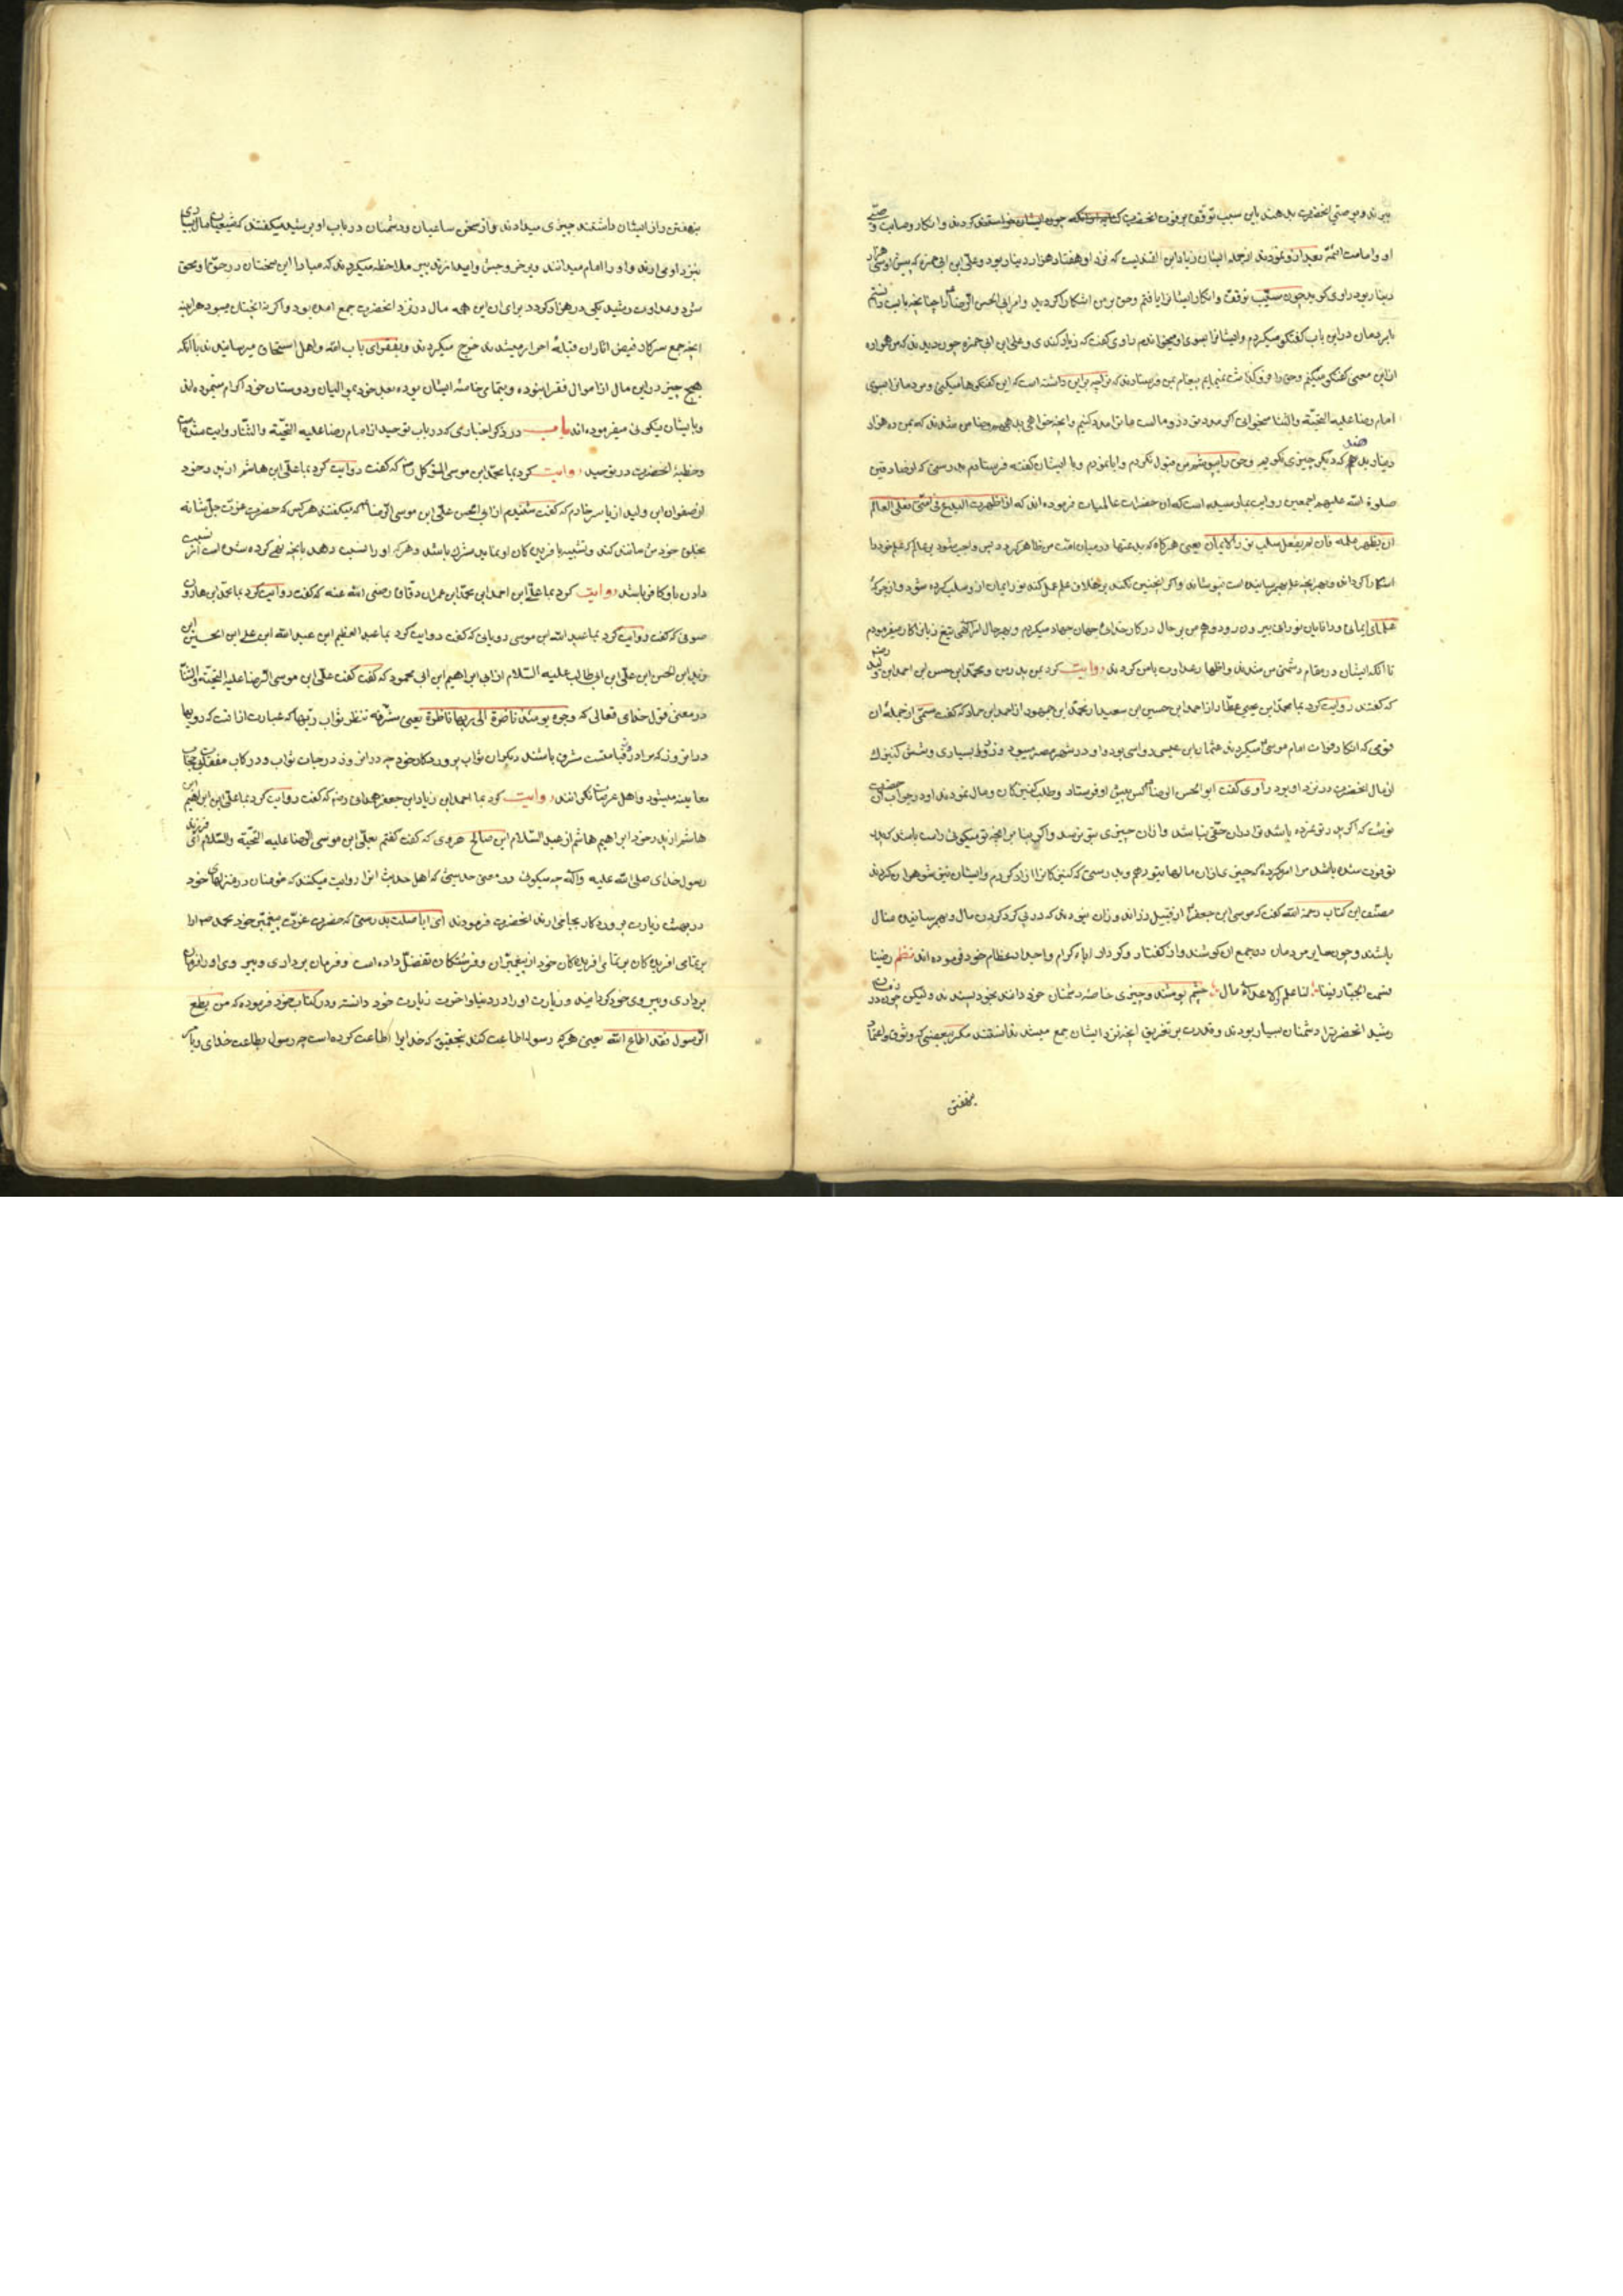 برند و بوصی انحضرت بدهند باین سبب توقف بر فوت انحضرت کردند و انکار وصایت و وصی
او و امامت ائمه بعد از او نمودند از جمله ایشان زیاد ابن القندیست که نزد او هفتاد هزار دینار بود و علی ابن ابی حمزه که پیش او سی هزار
دینار بود راوی کوید چون سبب توقف و انکار ایشانرا یافتم و حق بر من اشکارا کردید و امر ابی الحسن الرضا را چنانچه بایست دانستم
بامردمان در این باب کفتکو میکردم و ایشانرا بسوی او میخواندم راوی کفت که زیاد کندی و علی ابن ابی حمزه چون دیدند که من همواره
از این معنی کفتکو میکنم و حق را فرو کذاشت نمینمایم پیغام بمن فرستادند که ترا چه براین داشته است که این کفتکوها میکنی و مردمانرا بسوی
امام رضا علیه التحیة والثنا میخوانی اکر مدد تو زر و مالست ما ترا مدد کنیم و انچه خواهی بدهیم و ضامن شدند که بمن ده هزار
دینار بدهند که دیکر چیزی نکویم و حق را بپوشم من قبول نکردم و ابا نمودم و با ایشان کفته فرستادم بدرستی که از صادقین
صلوة الله علیهم اجمعین روایت بما رسیده است که ان حضرات عالمیات فرموده اند که اذا ظهرت البدع فی امتی فعلی العالم
ان یظهر علمه فان لم یفعل سلب نور الایمان یعنی هرکاه که بدعتها در میان امت من ظاهر کردد پس واجب شود بر عالم که علم خود را
اشکارا کرداند و بهر انچه علم بهم رسانیده است نپوشاند و اکر انچنین نکند بر خلاف علم عمل کند نور ایمان از و سلب کرده شود و از جرکه
علمای ایمانی و دانایان نورانی بیرون رود و هم من بر حال در کار خدای جهان جهاد میکردم و بهر حال
تا انکه ایشان در مقام دشمنی من شدند و اظهار عداوت بامن کردند روایت کرد بمن پدرم و محمد ابن حسن ابن احمد ابن ولید رضه
که کفتند روایت کرد بما محمد ابن یحیی عطار از احمد ابن حسین ابن سعید از محمد ابن جمهور از احمد ابن حماد که کفت سمتی از جمله ان
قومی که انکار وفات امام موسی میکردند عثمان ابن عیسی رواسی بود و او در شهر مصر میبود و زر بسیاری و شش کنیزک
از مال انحضرت در نزد او بود راوی کفت ابو الحسن الرضا کس پیش او فرستاد و طلب کنیزکان و مال نمودند او در جواب ان حضرت
نوشت که اکر پدر تو نمرده باشد ترا در ان حقی نباشد و از ان چیزی بتو نرسد و اکر بنا بر انچه تو میکوئی راست باشد که پدر
تو فوت شده باشد مرا امر نکرده که چیزی از ان مالها بتو دهم و بدرستی که کنیزکانرا ازاد کردم و ایشان بتزویج شوهر کردند
مصنف این کتاب رحمة الله کفت که موسی ابن جعفر از قبیل نبودند که در پی کرد کردن مال و بهم رسانیدن منال
باشند و چون سایر مردمان در جمع ان کوشند و از کفتار و کردار اباء کرام و اجداد عظام خود فرموده اند نظم رضینا
قسمت الجبار فینا لنا علم و للاعداء مال چشم پوشند و چیزی خاصه دشمنان خود دانند بخود پسندند ولیکن چون در زمان
رشید انحضرترا دشمنان بسیار بودند و قدرت بر تفریق انچه نزد ایشان جمع میشد نداشتند مکر ببعضی که وثوق و اعتماد
بنهفتن
بنهفتن راز ایشان داشتند چیزی میدادند و از سخن ساعیان و دشمنان در باب او برشید میکفتند که شیعیان مال بسیاری
بنزد او می ارند و او را امام میدانند و بر خروجش وا میدارند بیر ملاحظه میکردند که مبادا این سخنان در حق او محقق
شود و عداوت رشید یکی در هزار کردد برای ان این همه مال در نزد انحضرت جمع امده بود و اکر نه انچنان میبود هراینه
انچه جمع سرکار فیض اثاران قبلهٔ احرار میشدند خرج میکردند و بفقرای باب الله و اهل استحقاق میرسانیدند با انکه
هیچ چیز در این مال از اموال فقرا نبوده و بتمامی خاصهٔ ایشان بوده بعمل خود بموالیان و دوستان خود اکرام مینموده اند
و بایشان نیکوئی میفرموده اند باب در ذکر اخباری که در باب توحید از امام رضا علیه التحیة والثنا روایت شده است
و خطبهٔ انحضرت در توحید روایت کرد بما محمد ابن موسی المتوکل رضه که کفت روایت کرد بما علی ابن هاشم از پدر خود
از صفوان ابن ولید از یاسر خادم که کفت شنیدم از ابی الحسن علی ابن موسی الرضا که میکفتند هر کس که حضرت عزت جل شانه
بخلق خودش مانند کند و تشبیه بافریده کان او نماید مشرک باشد و هرکه او را نسبت دهد بانچه نهی کرده شده است از نسبت
دادن باو کافر باشد روایت کرد بما علی ابن احمد ابن محمد ابن عمران دقاق رضی الله عنه که کفت روایت کرد بما محمد ابن هارون
صوفی که کفت روایت کرد بما عبید الله ابن موسی رویانی که کفت روایت کرد بما عبد العظیم ابن عبد الله ابن علی ابن الحسین ابن
زید ابن الحسن ابن علی ابن ابی طالب علیه السلام از ابراهیم ابن ابی محمود که کفت کفت علی ابن موسی الرضا علیه التحیة والثنا
در معنی قول خدای تعالی که وجوه یومئذ ناضرة الی ربها ناظرة یعنی مشرقه تنظر ثواب ربها که عبارت از انست که رویها
در انروز که مراد روز قیامتست مشرق باشند و نکران ثواب پروردکار خود چه در انروز درجات ثواب و درکات
معاینه میشود و اهل عرصات نکرانند روایت کرد بما احمد ابن زیاد ابن جعفر همدانی رضه که کفت روایت کرد بما علی ابن ابراهیم ابن
هاشم از پدر خود ابراهیم هاشم از عبد السلام ابن صالح هروی که کفت کفتم بعلی ابن موسی الرضا علیه التحیة والسلام ای فرزند
رسول خدای صلی الله علیه وآله چه میکوئی در معنی حدیثی که اهل حدیث انرا روایت میکنند که مؤمنان در منزلهای خود
در بهشت زیارت پروردکار بجا می ارند انحضرت فرمودند ای ابا صلت بدرستی که حضرت عزت پیغمبر خود محمد صم را
بر تمامی افریده کان بر تمامی افریده کان خود از پیغمبران و فرشتکان تفضل داده است و فرمان برداری و پیروی او را فرمان
برداری و پیروی خود کردانیده و زیارت او را در دنیا و اخرت زیارت خود دانسته و در کتاب خود فرموده که من یطع
الرسول فقد اطاع الله یعنی هرکه رسول اطاعت کند بتحقیق که خدایرا اطاعت کرده است چه رسول بطاعت خدای